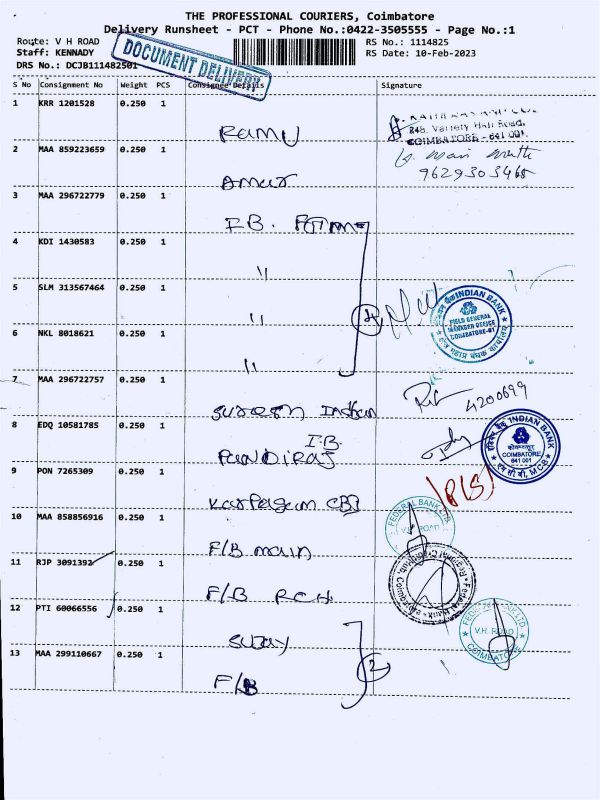 THE PROFESSIONAL COURIERS, Coimbatore
Delivery Runsheet - PCT - Phone No.:0422-3505555 - Page No.:1
Route: V H ROAD
Staff: KENNADY
DRS No.: DCJB111482501
RS No.: 1114825
RS Date: 10-Feb-2023
DOCUMENT DELIVERY
S No Consignment No Weight PCS Consignee Details Signature
1 KRR 1201528 0.250 1
Ramu
848, Variety Hall Road,
COIMBATORE - 641 001.
2 MAA 859223659 0.250 1
9629303468
Amur
3 MAA 296722779 0.250 1
I.B.
4 KDI 1430583 0.250 1
"
5 SLM 313567464 0.250 1
"
4
INDIAN BANK
FIELD GENERAL
MANAGER OFFICE
COIMBATORE-01
6 NKL 8018621 0.250 1
"
7 MAA 296722757 0.250 1
Suresh Indian
4200699
8 EDQ 10581785 0.250 1
I.B.
Pandiraj
इंडियन बैंक INDIAN BANK
कोयम्बत्तूर
COIMBATORE
641 001
9 PON 7265309 0.250 1
Karpagam CBJ
10 MAA 858856916 0.250 1
F/B main
FEDERAL BANK LTD
V.H. ROAD
11 RJP 3091392 0.250 1
F/B RCH
12 PTI 60066556 0.250 1
Sujay
2
V.H. ROAD
COIMBATORE
13 MAA 299110667 0.250 1
F/B